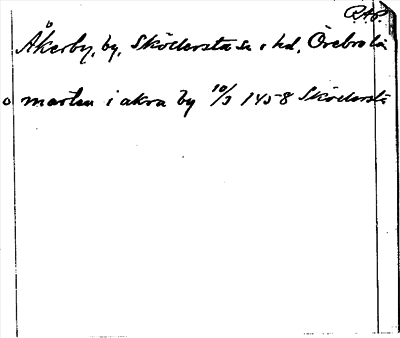 RAP.
Åkerby, by, Sköllersta sn o hd, Örebro lä
o marten i akra by 10/3 1458 Sköllerst